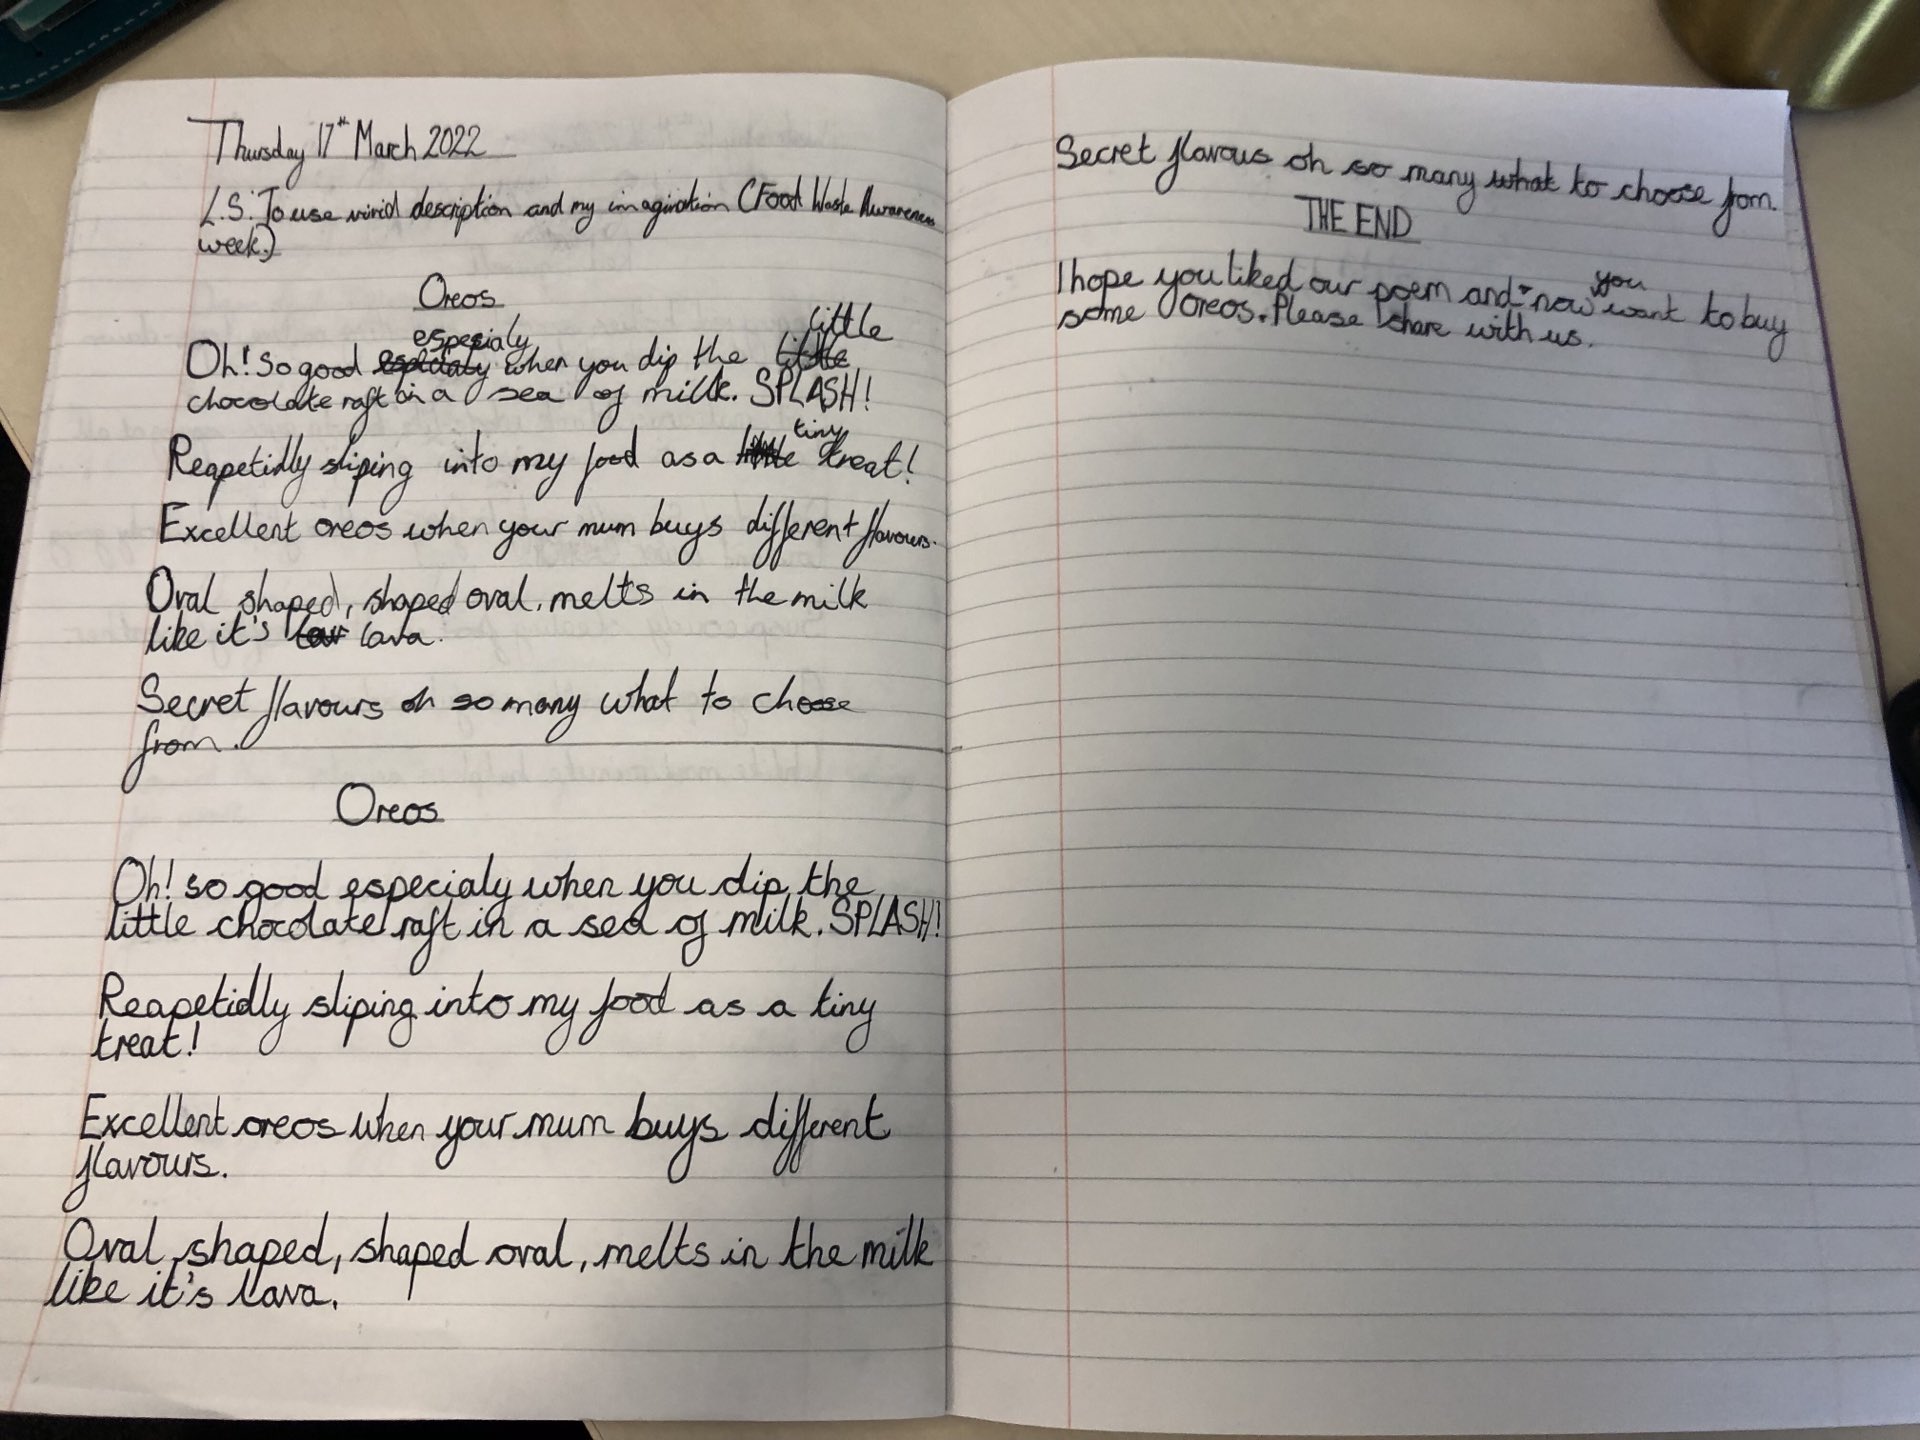 Thursday 17th March 2022
L.S. To use vivid description and my imagination (Food Waste Awareness
week.)
Oreos
Oh! So good especialy when you dip the little
chocolate raft in a sea of milk. SPLASH!
Reapetidly sliping into my food as a tiny treat!
Excellent oreos when your mum buys different flavours.
Oval shaped, shaped oval, melts in the milk
like it's lava.
Secret flavours oh so many what to choose
from.
Oreos
Oh! so good especialy when you dip the
little chocolate raft in a sea of milk. SPLASH!
Reapetidly sliping into my food as a tiny
treat!
Excellent oreos when your mum buys different
flavours.
Oval shaped, shaped oval, melts in the milk
like it's lava.
Secret flavous oh so many what to choose from.
THE END
I hope you liked our poem and now you want to buy
some Oreos. Please share with us.